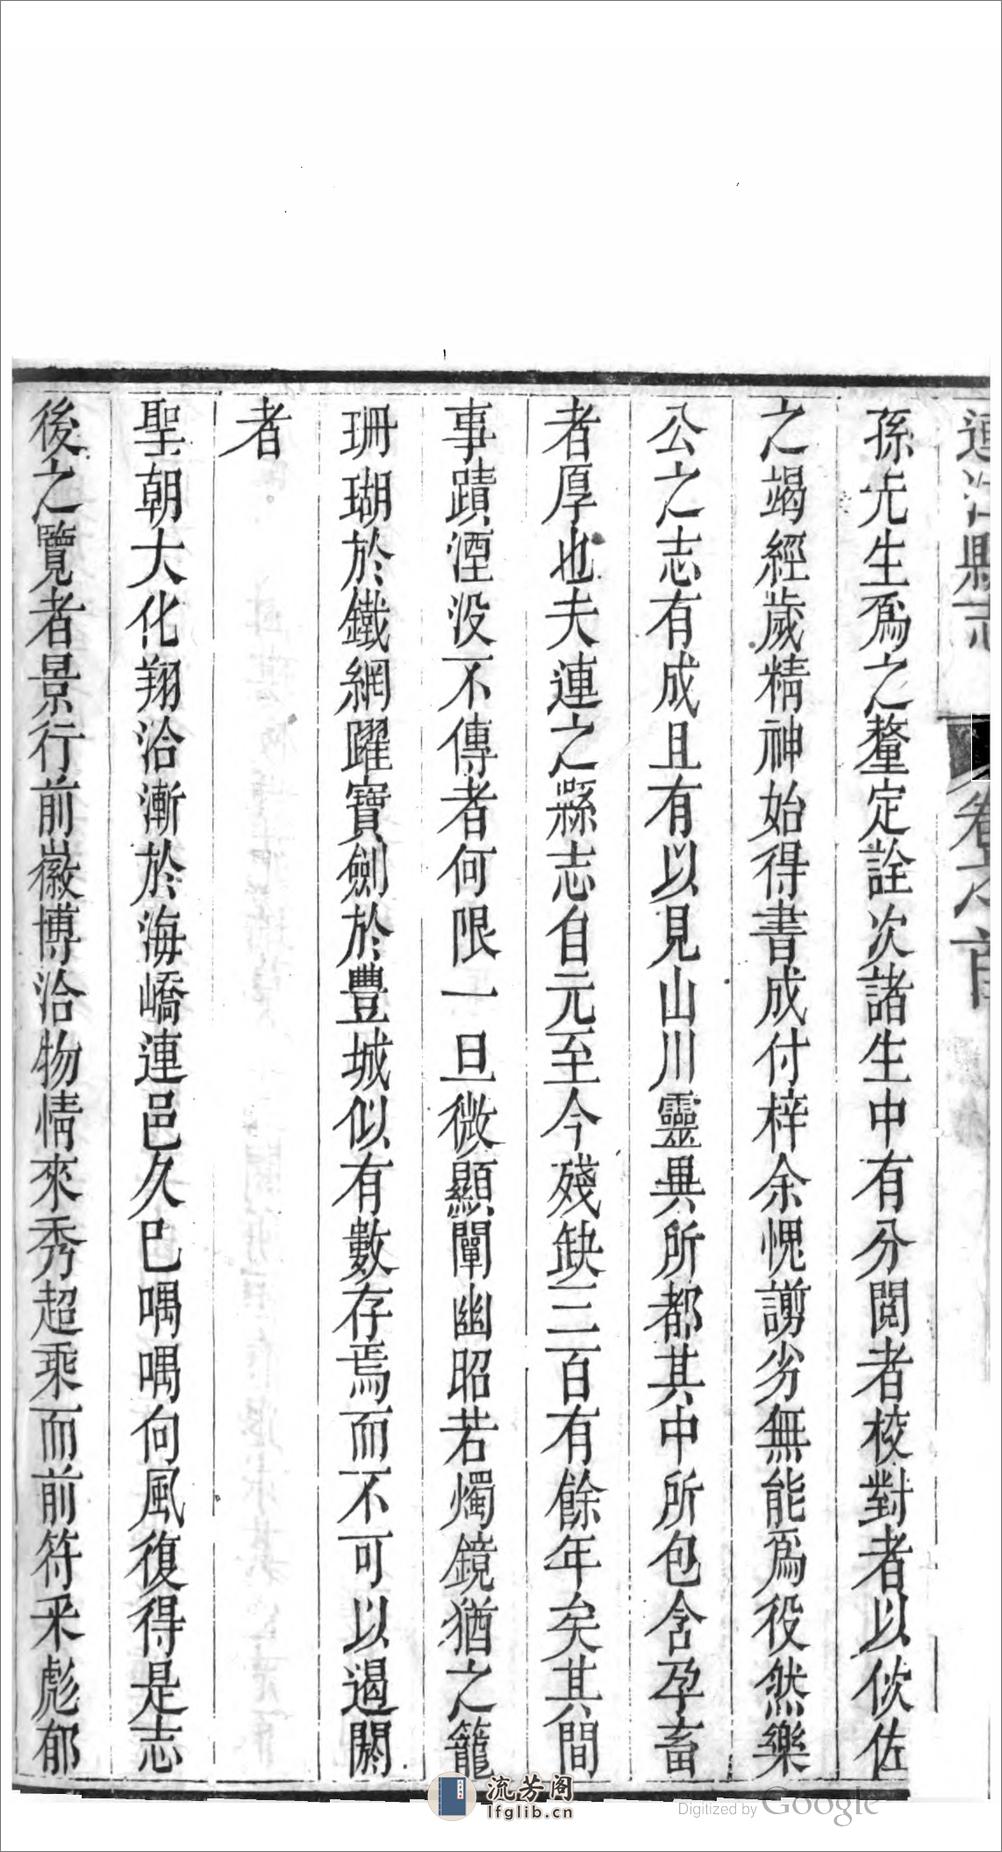 連江縣志
卷之首
孫先生爲之釐定詮次諸生中有分閱者校對者以佽佐
之竭經歲精神始得書成付梓余愧謭劣無能爲役然樂
公之志有成且有以見山川靈異所都其中所包含孕畜
者厚也夫連之縣志自元至今殘缺三百有餘年矣其間
事蹟湮没不傳者何限一旦微顯闡幽昭若燭鏡猶之籠
珊瑚於鐵網躍寶劍於豐城似有數存焉而不可以遏閼
者
聖朝大化翔洽漸於海嶠連邑久已喁喁向風復得是志
後之覽者景行前徽博洽物情來秀超乘而前符采彪郁
流芳阁
lfglib.cn
Digitized by Google